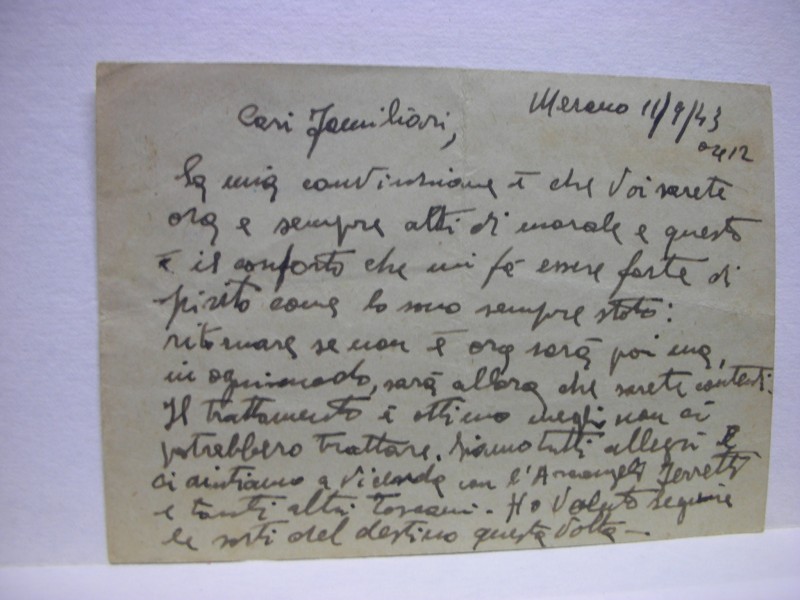 Merano 11/9/43
ore 12
Cari Famigliari,
La mia convinzione è che Voi sarete
ora e sempre alti di morale e questo
è il conforto che mi fà essere forte di
spirito come lo sono sempre stato:
ritornare se non è ora sarà poi ma,
in ogni modo, sarà allora che sarete contenti.
Il trattamento è ottimo meglio non ci
potrebbero trattare. Siamo tutti allegri e
ci aiutiamo a vicenda con l'Arcangeli Ferretti
e tanti altri Toscani. Ho voluto seguire
le sorti del destino questa volta —